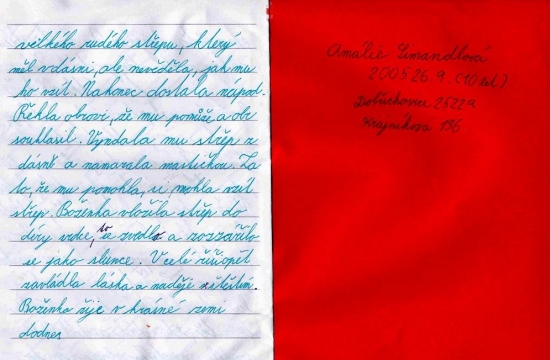 velkého rudého střepu, který
měl v dásni, ale nevěděla, jak mu
ho vzít. Nakonec dostala nápad.
Řekla obrovi, že mu pomůže a obr
souhlasil. Vyndala mu střep z
dásně a namazala mastičkou. Za
to, že mu pomohla, si mohla vzít
střep. Boženka vložila střep do
díry v srdce, to se zvedlo a rozzářilo
se jako slunce. V celé říši opět
zavládla láska a naděje a štěstím.
Boženka žije v krásné zemi
dodnes
Amálie Šmandlová
2005 26. 9. (10 let)
Dobřichovice 25229
Krajníkova 196